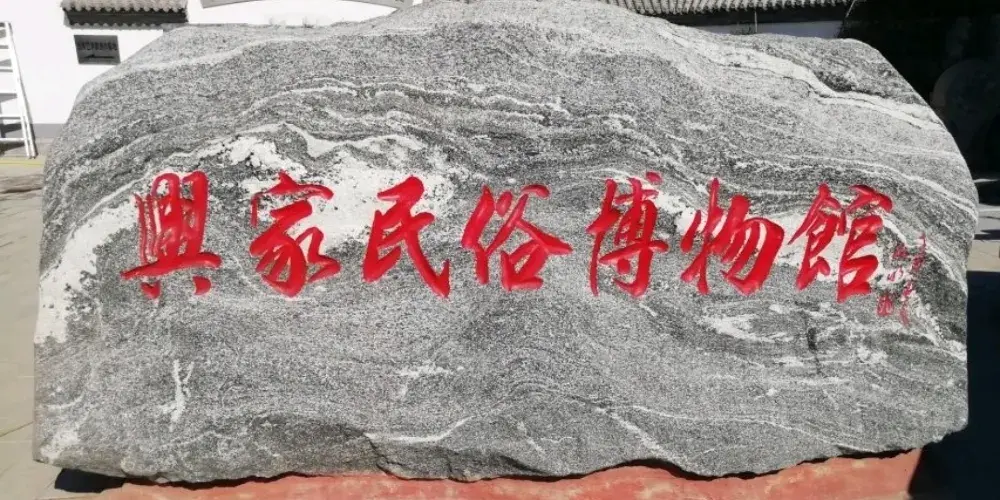 興家民俗博物館